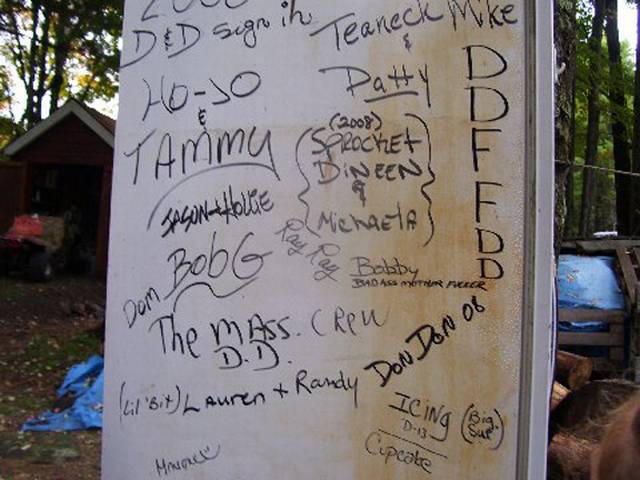 2008
D&D sign in
Teaneck Mike
&
Patty
HO-JO
&
TAMMY
JASON + HOLLIE
(2008)
SPROCKET
DINEEN
&
Michaela
D
D
F
F
D
D
Ray Ray
Bobby
BADASS MOTHER FUCKER
Dom
BobG
The mAss. Crew
D.D.
Don Don 08
(Lil'Bit) Lauren + Randy
ICing
D-13
(Big Sue)
Cupcake